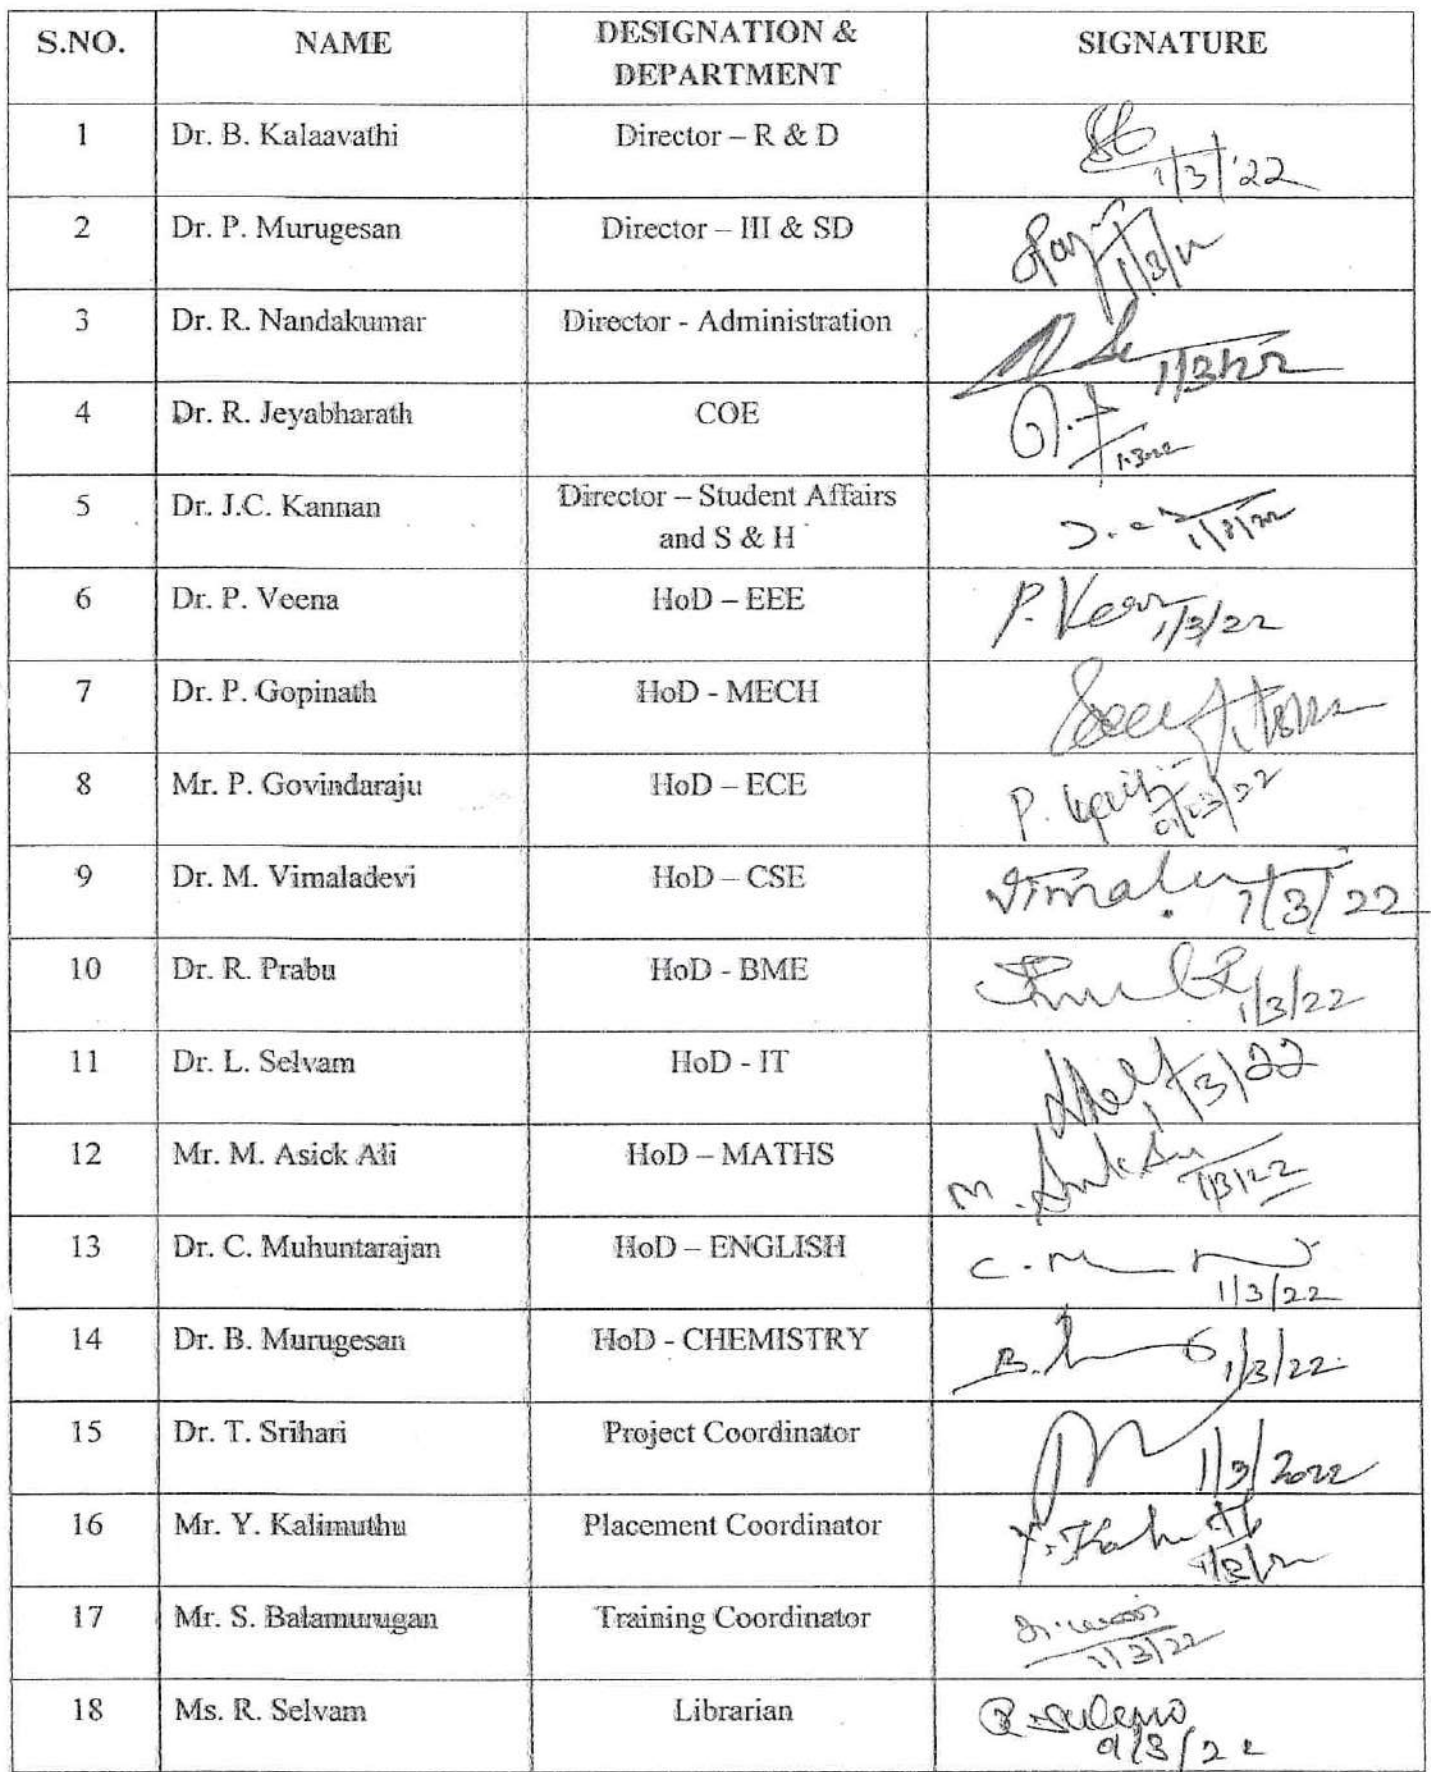 S.NO. NAME DESIGNATION & DEPARTMENT SIGNATURE
1 Dr. B. Kalaavathi Director – R & D 1/3/'22
2 Dr. P. Murugesan Director – III & SD
3 Dr. R. Nandakumar Director - Administration 1/3/22
4 Dr. R. Jeyabharath COE 1.3.22
5 Dr. J.C. Kannan Director – Student Affairs and S & H
6 Dr. P. Veena HoD – EEE P. 1/3/22
7 Dr. P. Gopinath HoD - MECH
8 Mr. P. Govindaraju HoD – ECE P. 01/03/22
9 Dr. M. Vimaladevi HoD – CSE 1/3/22
10 Dr. R. Prabu HoD - BME 1/3/22
11 Dr. L. Selvam HoD - IT 1/3/22
12 Mr. M. Asick Ali HoD – MATHS M. 1/3/22
13 Dr. C. Muhuntarajan HoD – ENGLISH C. 1/3/22
14 Dr. B. Murugesan HoD - CHEMISTRY B. 1/3/22
15 Dr. T. Srihari Project Coordinator 1/3/2022
16 Mr. Y. Kalimuthu Placement Coordinator
17 Mr. S. Balamurugan Training Coordinator 1/3/22
18 Ms. R. Selvam Librarian